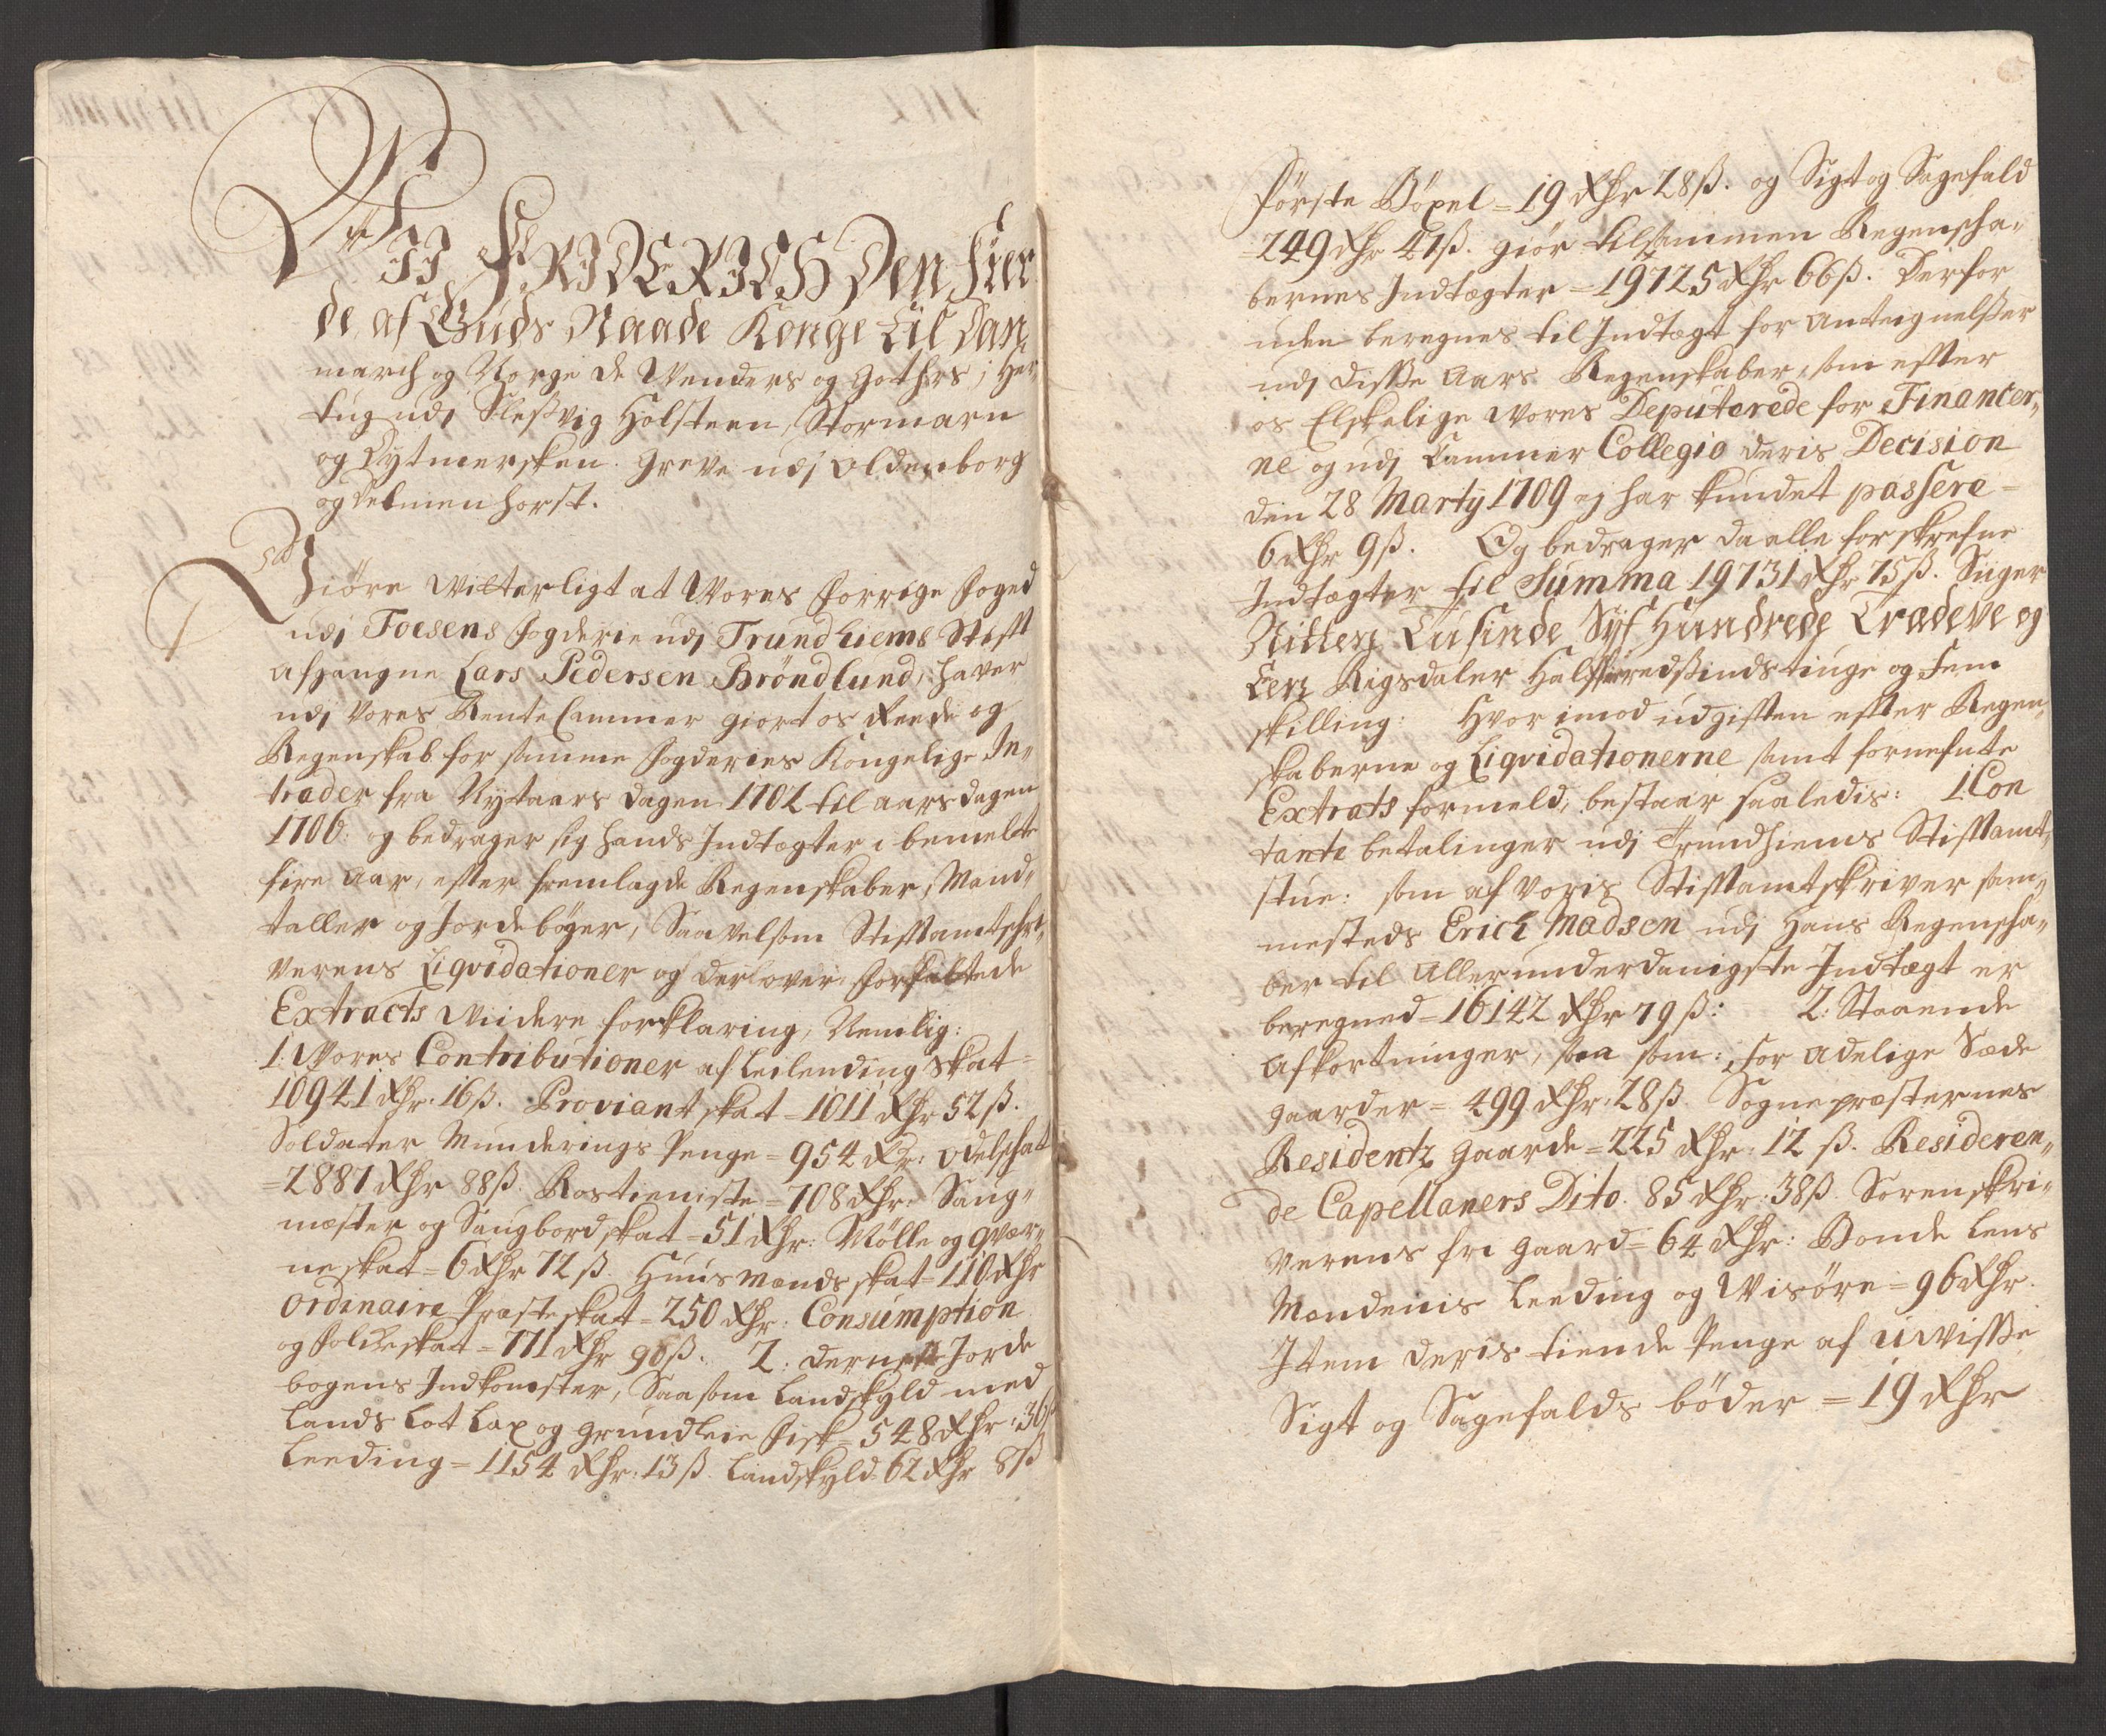 Wii FRIDERICH Den Fier
de, af Guds Naade Konge til Dan,
march og Norge de Wenders og Gothers, i Her
tug udj Sleßvig Holsteen, Stormarn
og Dytmersken. Greve udj Oldenborg
og Delmenhorst.
Giøre Witterligt at Vores Forrige Foged
udj Foesens Fogderie udj Trundhiems Stift
afgangne Lars Pedersen Bröndlund, haver
udj Vores Rente Cammer giort os Reede og
Regenskab for samme Fogderies Kongelige In,
trader fra Nytaars Dagen 1702 til aarsdagen
1706: og bedrager sig hands Indtægter i bemelte
fire Aar, efter fremlagde Regenskaber, Mand,
taller og Jordebøger, Saavelsom Stiftamtschri,
verens Liqvidationer og derover forfattede
Extracts Viidere forklaring, Nemlig:
1. Vores Contributioner af Leilending Skat =
10941 Rdr. 16 ß. Proviant skat = 1011 Rdr 52 ß.
Soldater Munderings Penge = 954 Rdr: Odelschat
= 2887 Rdr 88 ß. Rostieniste = 708 Rdr. Saug,
mæster og Saugbord skat = 51 Rdr: Mölle og qvær,
neskat = 6 Rdr 72 ß. Huus mands skat = 110 Rdr
Ordinaire Præsteskat = 250 Rdr: Consumption
og Folckeskat = 771 Rdr 90 ß. 2: dernest Jorde
bogens Indkomster, Saasom Landskyld med
Lands Lot Lax og grundleie Fisk = 548 Rdr: 36 ß
Leeding = 1154 Rdr: 13 ß. Landskyld 62 Rdr 8 ß
Første Böxel = 19 Rdr 28 ß. og Sigt og Sagefald
= 249 Rdr 41 ß. giør tilsammen Regenscha,
bernes Indtægter = 19725 Rdr 66 ß. Derfor
uden beregnes til Indtægt for Anteignelßer
udj disse Aars Regenskaber, som efter
os Elskelige Vores Deputerede for Financer,
ne og udj Cammer Collegio deris Decision
den 28 Martij 1709 ej har kundet passere =
6 Rdr 9 ß. Og bedrager da alle forskrefne
Indtægter til Summa 19731 Rdr 75 ß. Siiger
Nitten Tusinde Syf Hundrede Tradeve og
Een Rigsdaler Halfieredsindstiuge og Fem
skilling: Hvor imod udgiften efter Regen,
skaberne og Liqvidationerne samt fornefnte
Extrats formeld, bestaar saaledis: 1. Con
tante betalinger udj Trundhiems Stiftamt,
stue: som af Voris Stiftamtskriver sam,
mesteds Erich Madsen udj Hans Regenscha,
ber til Allerunderdanigste Indtægt er
beregned = 16142 Rdr 79 ß: 2: Staaende
Afkortninger, saa som: for Adelige Sæde
gaarder = 499 Rdr: 28 ß. Sognepræsternes
Residentz Gaarde = 225 Rdr: 12 ß. Residerен,
de Capellaners Dito. 85 Rdr: 38 ß. Sorenskri,
verens fri gaard = 64 Rdr: Bonde Lens
Mændenis Leeding og Wisøre = 96 Rdr.
Item deris tiende Penge af uwisse
Sigt og Sagefalds bøder = 19 Rdr